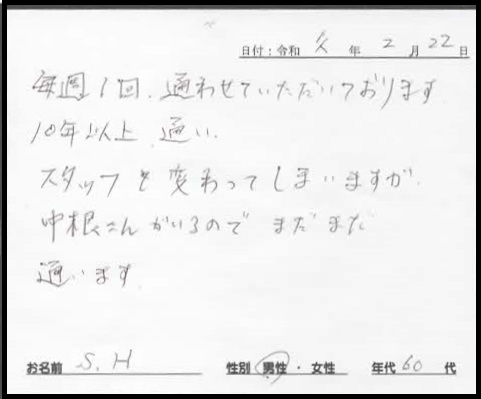 日付：令和 久 年 2 月 22 日
毎週1回、通わせていただいております
10年以上、通い、
スタッフも変わってしまいますが、
中根さんがいるのでまだまだ
通います。
お名前 S.H 性別 男性・女性 年代 60 代